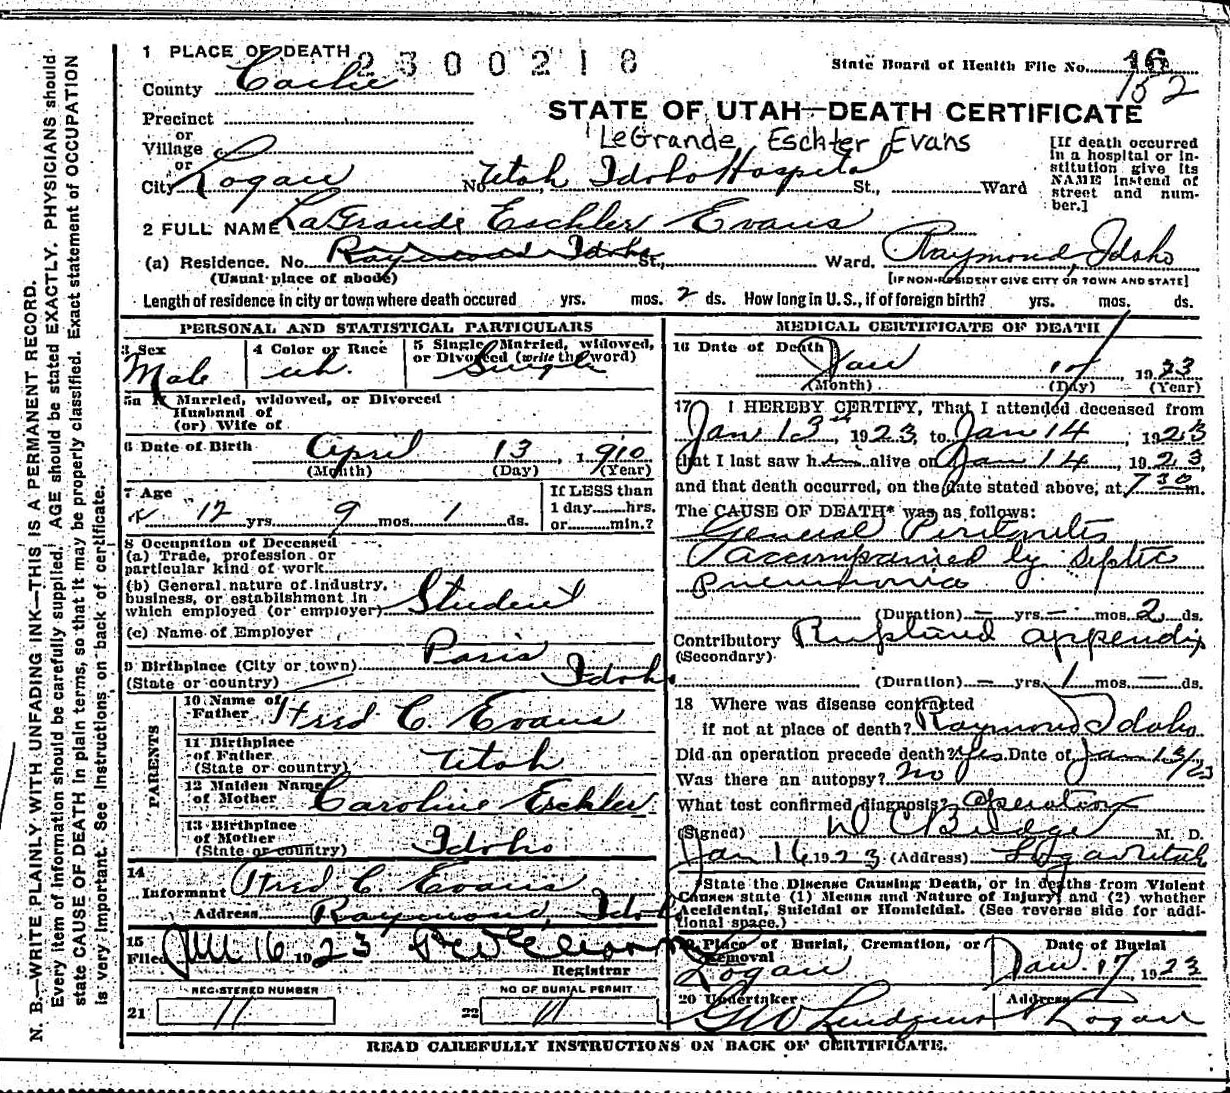 1 PLACE OF DEATH 2300218
State Board of Health File No. 16
152
County Cache
STATE OF UTAH—DEATH CERTIFICATE
Precinct
or
Village
or
LeGrande Eschter Evans
[If death occurred in a hospital or institution give its NAME instead of street and number.]
City Logan No. Utah Idaho Hospital St., Ward
2 FULL NAME LaGrande Eschler Evans
(a) Residence. No. Raymond Idaho St., Ward. Raymond, Idaho
(Usual place of abode) [IF NON-RESIDENT GIVE CITY OR TOWN AND STATE]
Length of residence in city or town where death occured yrs. mos. 2 ds. How long in U.S., if of foreign birth? yrs. mos. ds.
PERSONAL AND STATISTICAL PARTICULARS
3 Sex
Male
4 Color or Race
wh.
5 Single, Married, widowed, or Divorced (write the word)
Single
5a If Married, widowed, or Divorced
Husband of
(or) Wife of
6 Date of Birth April 13, 1910
(Month) (Day) (Year)
7 Age
12 yrs. 9 mos. 1 ds.
If LESS than
1 day....hrs.
or....min.?
8 Occupation of Deceased
(a) Trade, profession or
particular kind of work
(b) General nature of industry,
business, or establishment in
which employed (or employer) Student
(c) Name of Employer
9 Birthplace (City or town) Paris
(State or country) Idaho
PARENTS
10 Name of
Father Fred C Evans
11 Birthplace
of Father
(State or country) Utah
12 Maiden Name
of Mother Caroline Eschler
13 Birthplace
of Mother
(State or country) Idaho
14
Informant Fred C Evans
Address Raymond, Idaho
15
Filed Jan 16 1923
Registrar
REGISTERED NUMBER
21 11
NO OF BURIAL PERMIT
22 11
MEDICAL CERTIFICATE OF DEATH
16 Date of Death Jan 1923
(Month) (Day) (Year)
17 I HEREBY CERTIFY, That I attended deceased from
Jan 13th, 1923, to Jan 14, 1923
that I last saw him alive on Jan 14, 1923,
and that death occurred, on the date stated above, at 7 30 m.
The CAUSE OF DEATH* was as follows:
General Peritonitis
accompanied by Septic
Pneumonia
(Duration) — yrs. — mos. 2 ds.
Contributory Ruptured appendix
(Secondary)
(Duration) — yrs. 1 mos. — ds.
18 Where was disease contracted
if not at place of death? Raymond Idaho
Did an operation precede death? Yes Date of Jan 13/23
Was there an autopsy? No
What test confirmed diagnosis? Operation
(Signed) D C Budge M. D.
Jan 16 1923 (Address) Logan Utah
*State the Disease Causing Death, or in deaths from Violent
Causes state (1) Means and Nature of Injury; and (2) whether
Accidental, Suicidal or Homicidal. (See reverse side for additional space.)
19 Place of Burial, Cremation, or
Removal
Logan
Date of Burial
Jan. 17 1923
20 Undertaker
G W Lindquist
Address
Logan
READ CAREFULLY INSTRUCTIONS ON BACK OF CERTIFICATE.
N. B.—WRITE PLAINLY WITH UNFADING INK—THIS IS A PERMANENT RECORD.
Every item of information should be carefully supplied. AGE should be stated EXACTLY. PHYSICIANS should
state CAUSE OF DEATH in plain terms, so that it may be properly classified. Exact statement of OCCUPATION
is very important. See instructions on back of certificate.